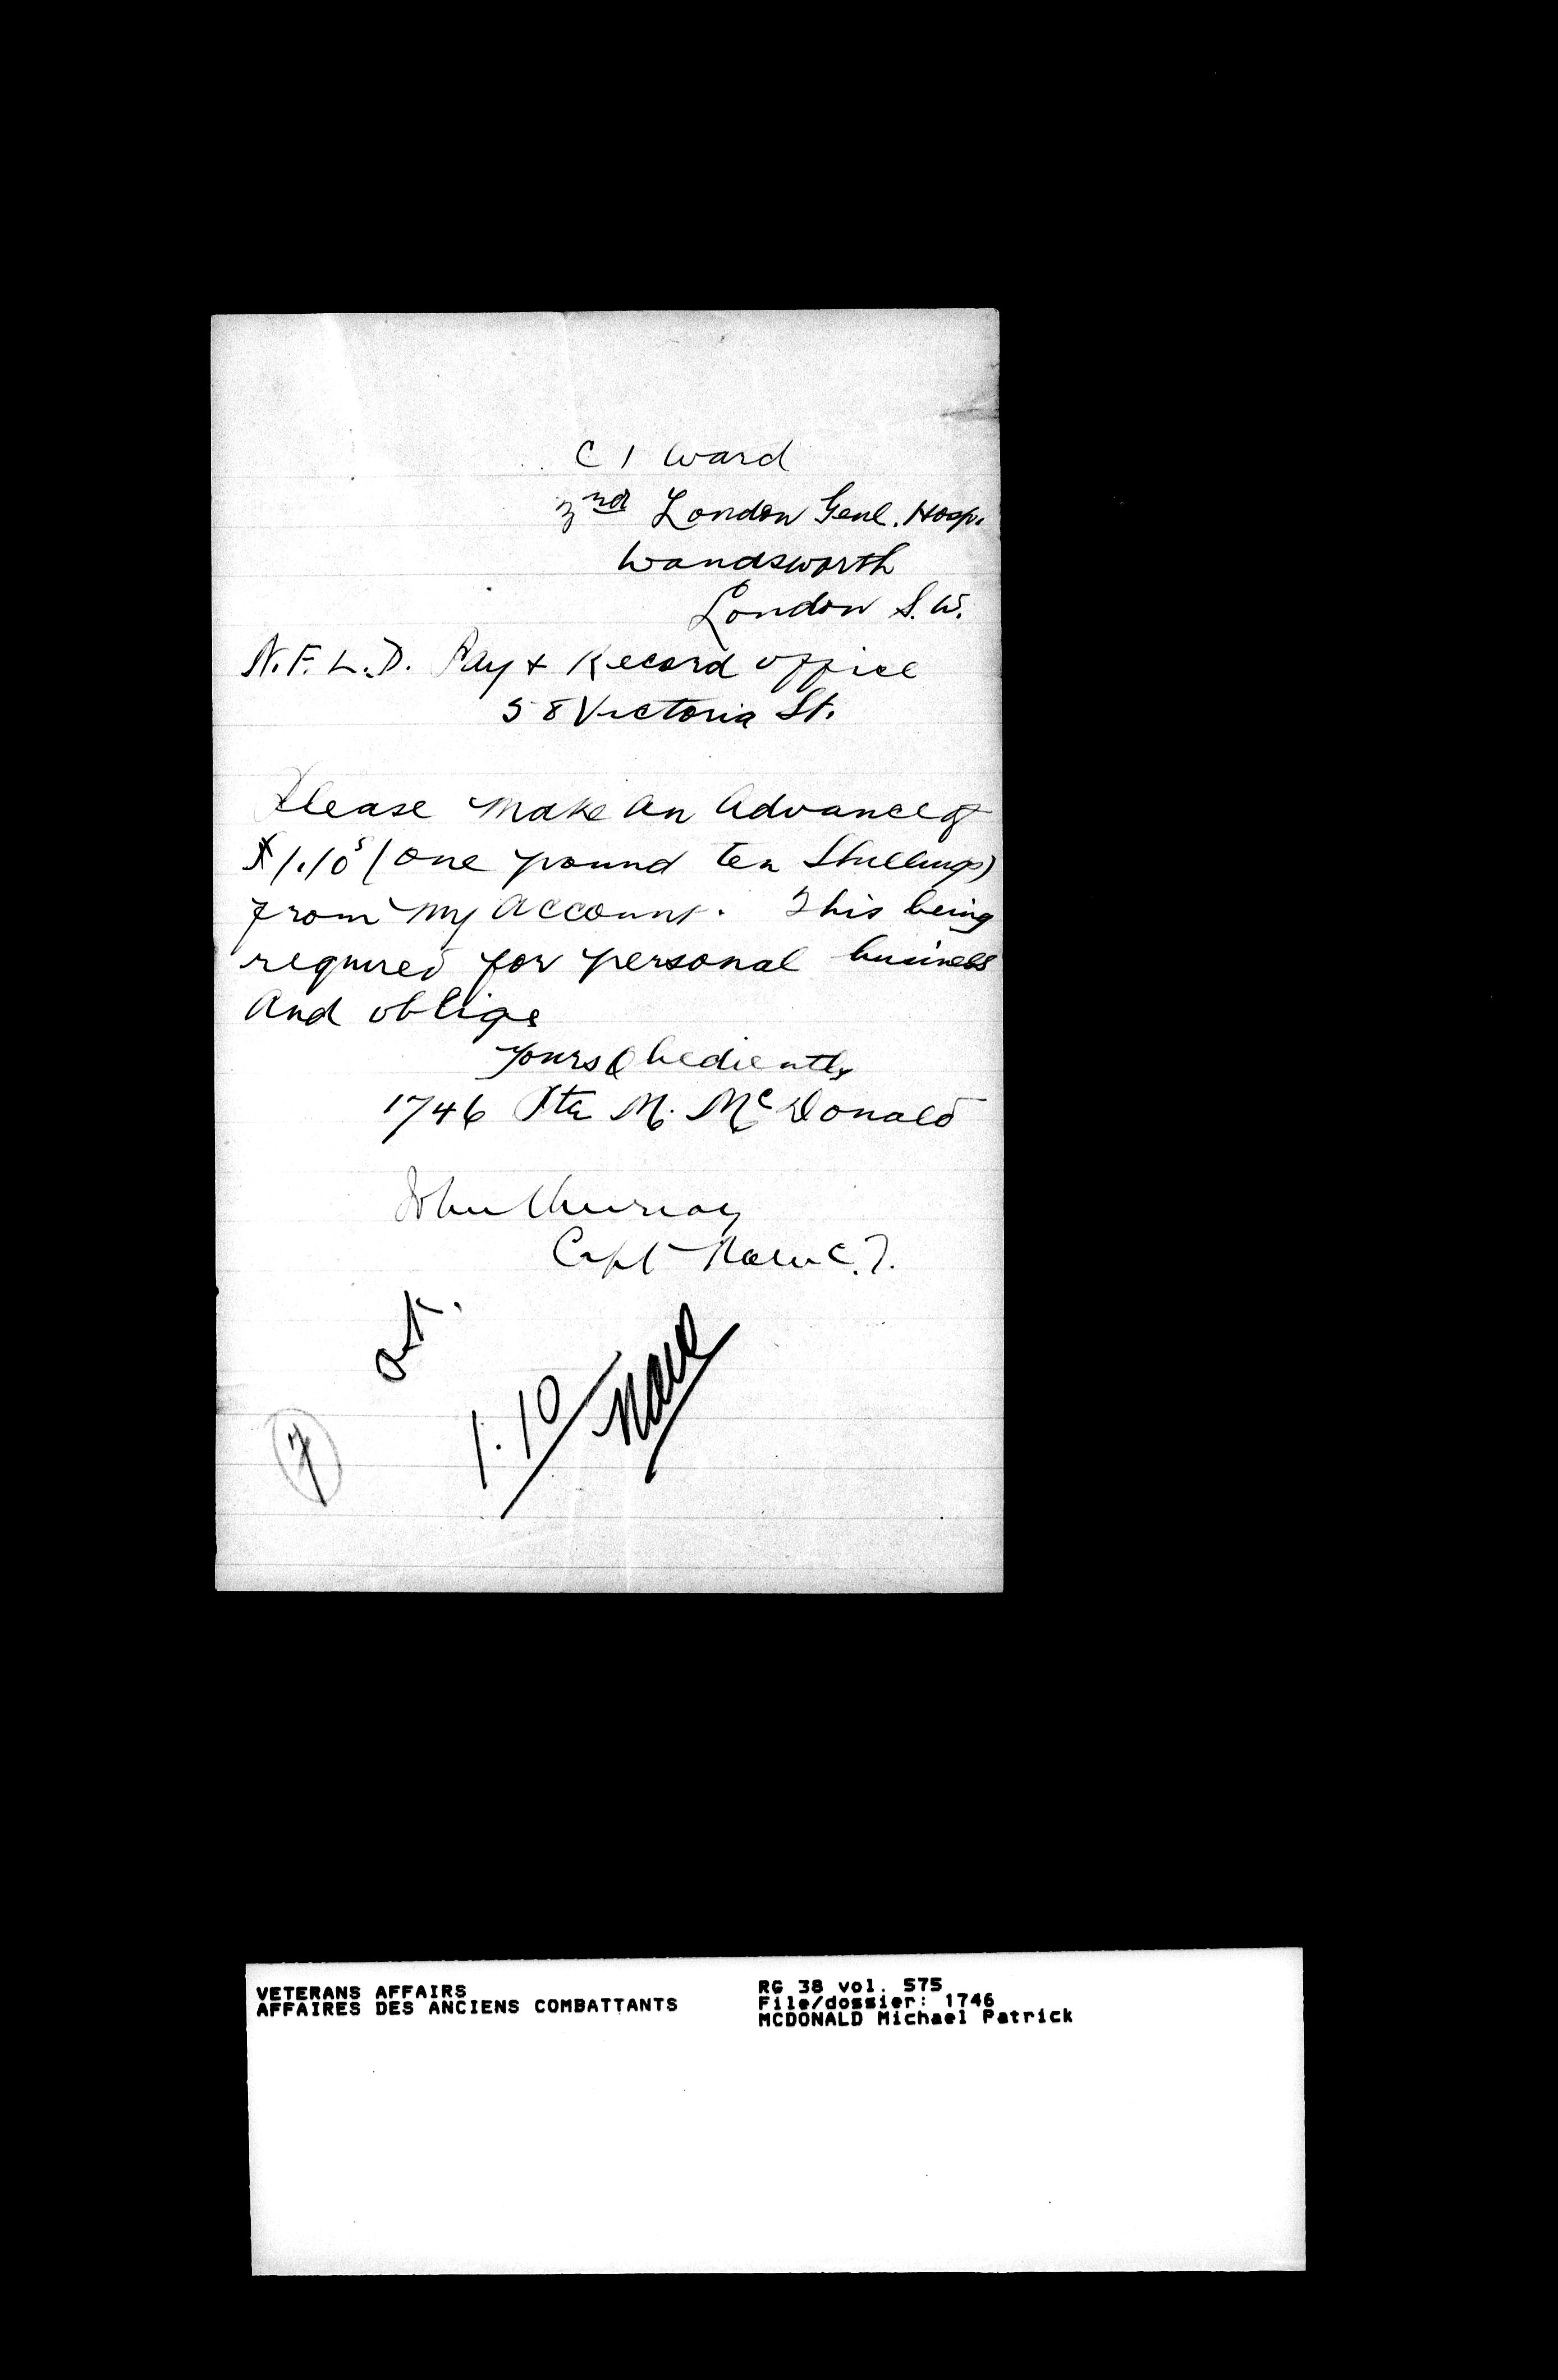 C 1 Ward
3rd London Genl. Hosp.
Wandsworth
London S.W.
N.F.L.D. Pay & Record office
58 Victoria St.
Please make an Advance of
£1.10s (one pound ten Shillings)
from my Account. This being
required for personal business
And oblige
Yours Obediently
1746 Pte M. McDonald
John Murray
Capt RAMC.T.
1.10/
7
VETERANS AFFAIRS
AFFAIRES DES ANCIENS COMBATTANTS
RG 38 vol. 575
File/dossier: 1746
MCDONALD Michael Patrick